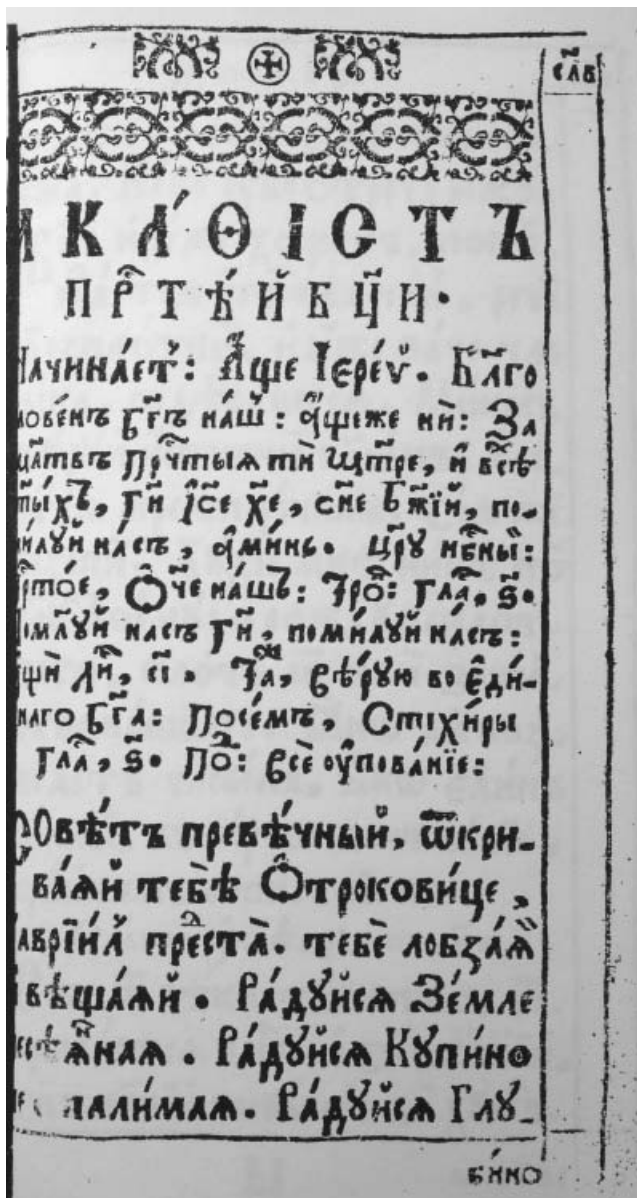 сл҃в
АКА́ѲІСТЪ
ПРⷭ҇ТѢ́Й БЦ҃И.
Начина́етⷭ҇: А҆́ще І҆ере́й. Бл҃го
слове́нъ бг҃ъ на́шꙿ: а҆́щеже ни̑: За
мл҃твъ прⷭ҇тыѧ ти̑ мт҃ре, и҆ всѣ́
ст҃ы́хъ, гдⷭ҇и і҆с҃е хрⷭ҇те, сн҃е бж҃їй, по-
ми́лꙋй на́съ, а҆ми́нь. Цр҃ю нбⷭ҇ный:
трⷭ҇то́е, Ѻ҆́ч҃е на́шъ: Тро: гла, ѕ҃.
Поми́лꙋй насъ гдⷭ҇и, поми́лꙋй на́съ:
Та, вѣ́рꙋю во є҆ди́-
наго бг҃а: Посе́мъ, Стїхи́ры
гла, ѕ҃. По: всѐ оу҆пова́нїе:
СОвѣ́тъ превѣ́чный, ѿкри-
ва́ѧй тебѣ̀ Ѻ҆трокови́це,
Гаврїи́лꙿ предста̀. тебѐ лобза́ѧ
и҆ вѣща́ѧй. Ра́дꙋйсѧ Зе́мле
несѣ́ѧннаѧ. Ра́дꙋйсѧ Кꙋпи́но
не палимаѧ. Ра́дꙋйсѧ Глꙋ-
би́но